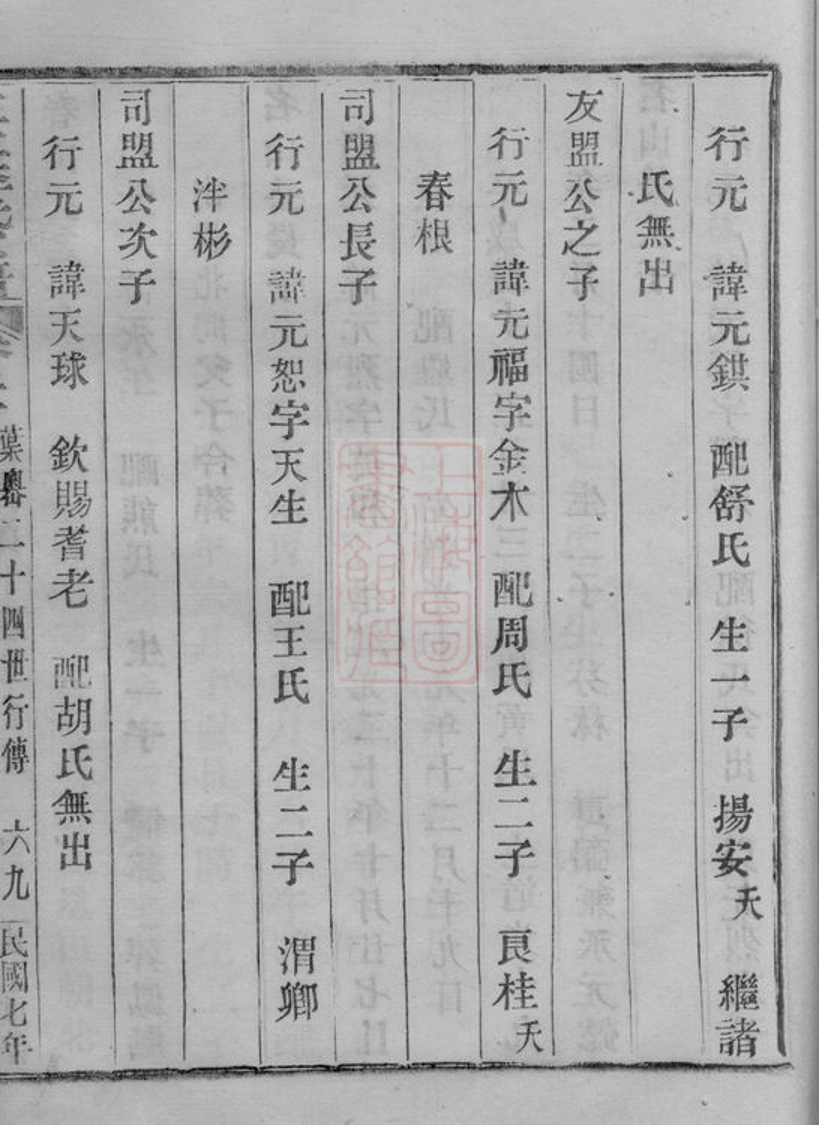 行元 諱元鉷 配舒氏 生一子 揚安夭 繼諸
氏無出
友盟公之子
行元 諱元福字金木 配周氏 生二子 良桂夭
春根
司盟公長子
行元 諱元恕字天生 配王氏 生二子 渭卿
泮彬
司盟公次子
行元 諱天球 欽賜耆老 配胡氏無出
二十四世行傳 六九 民國七年